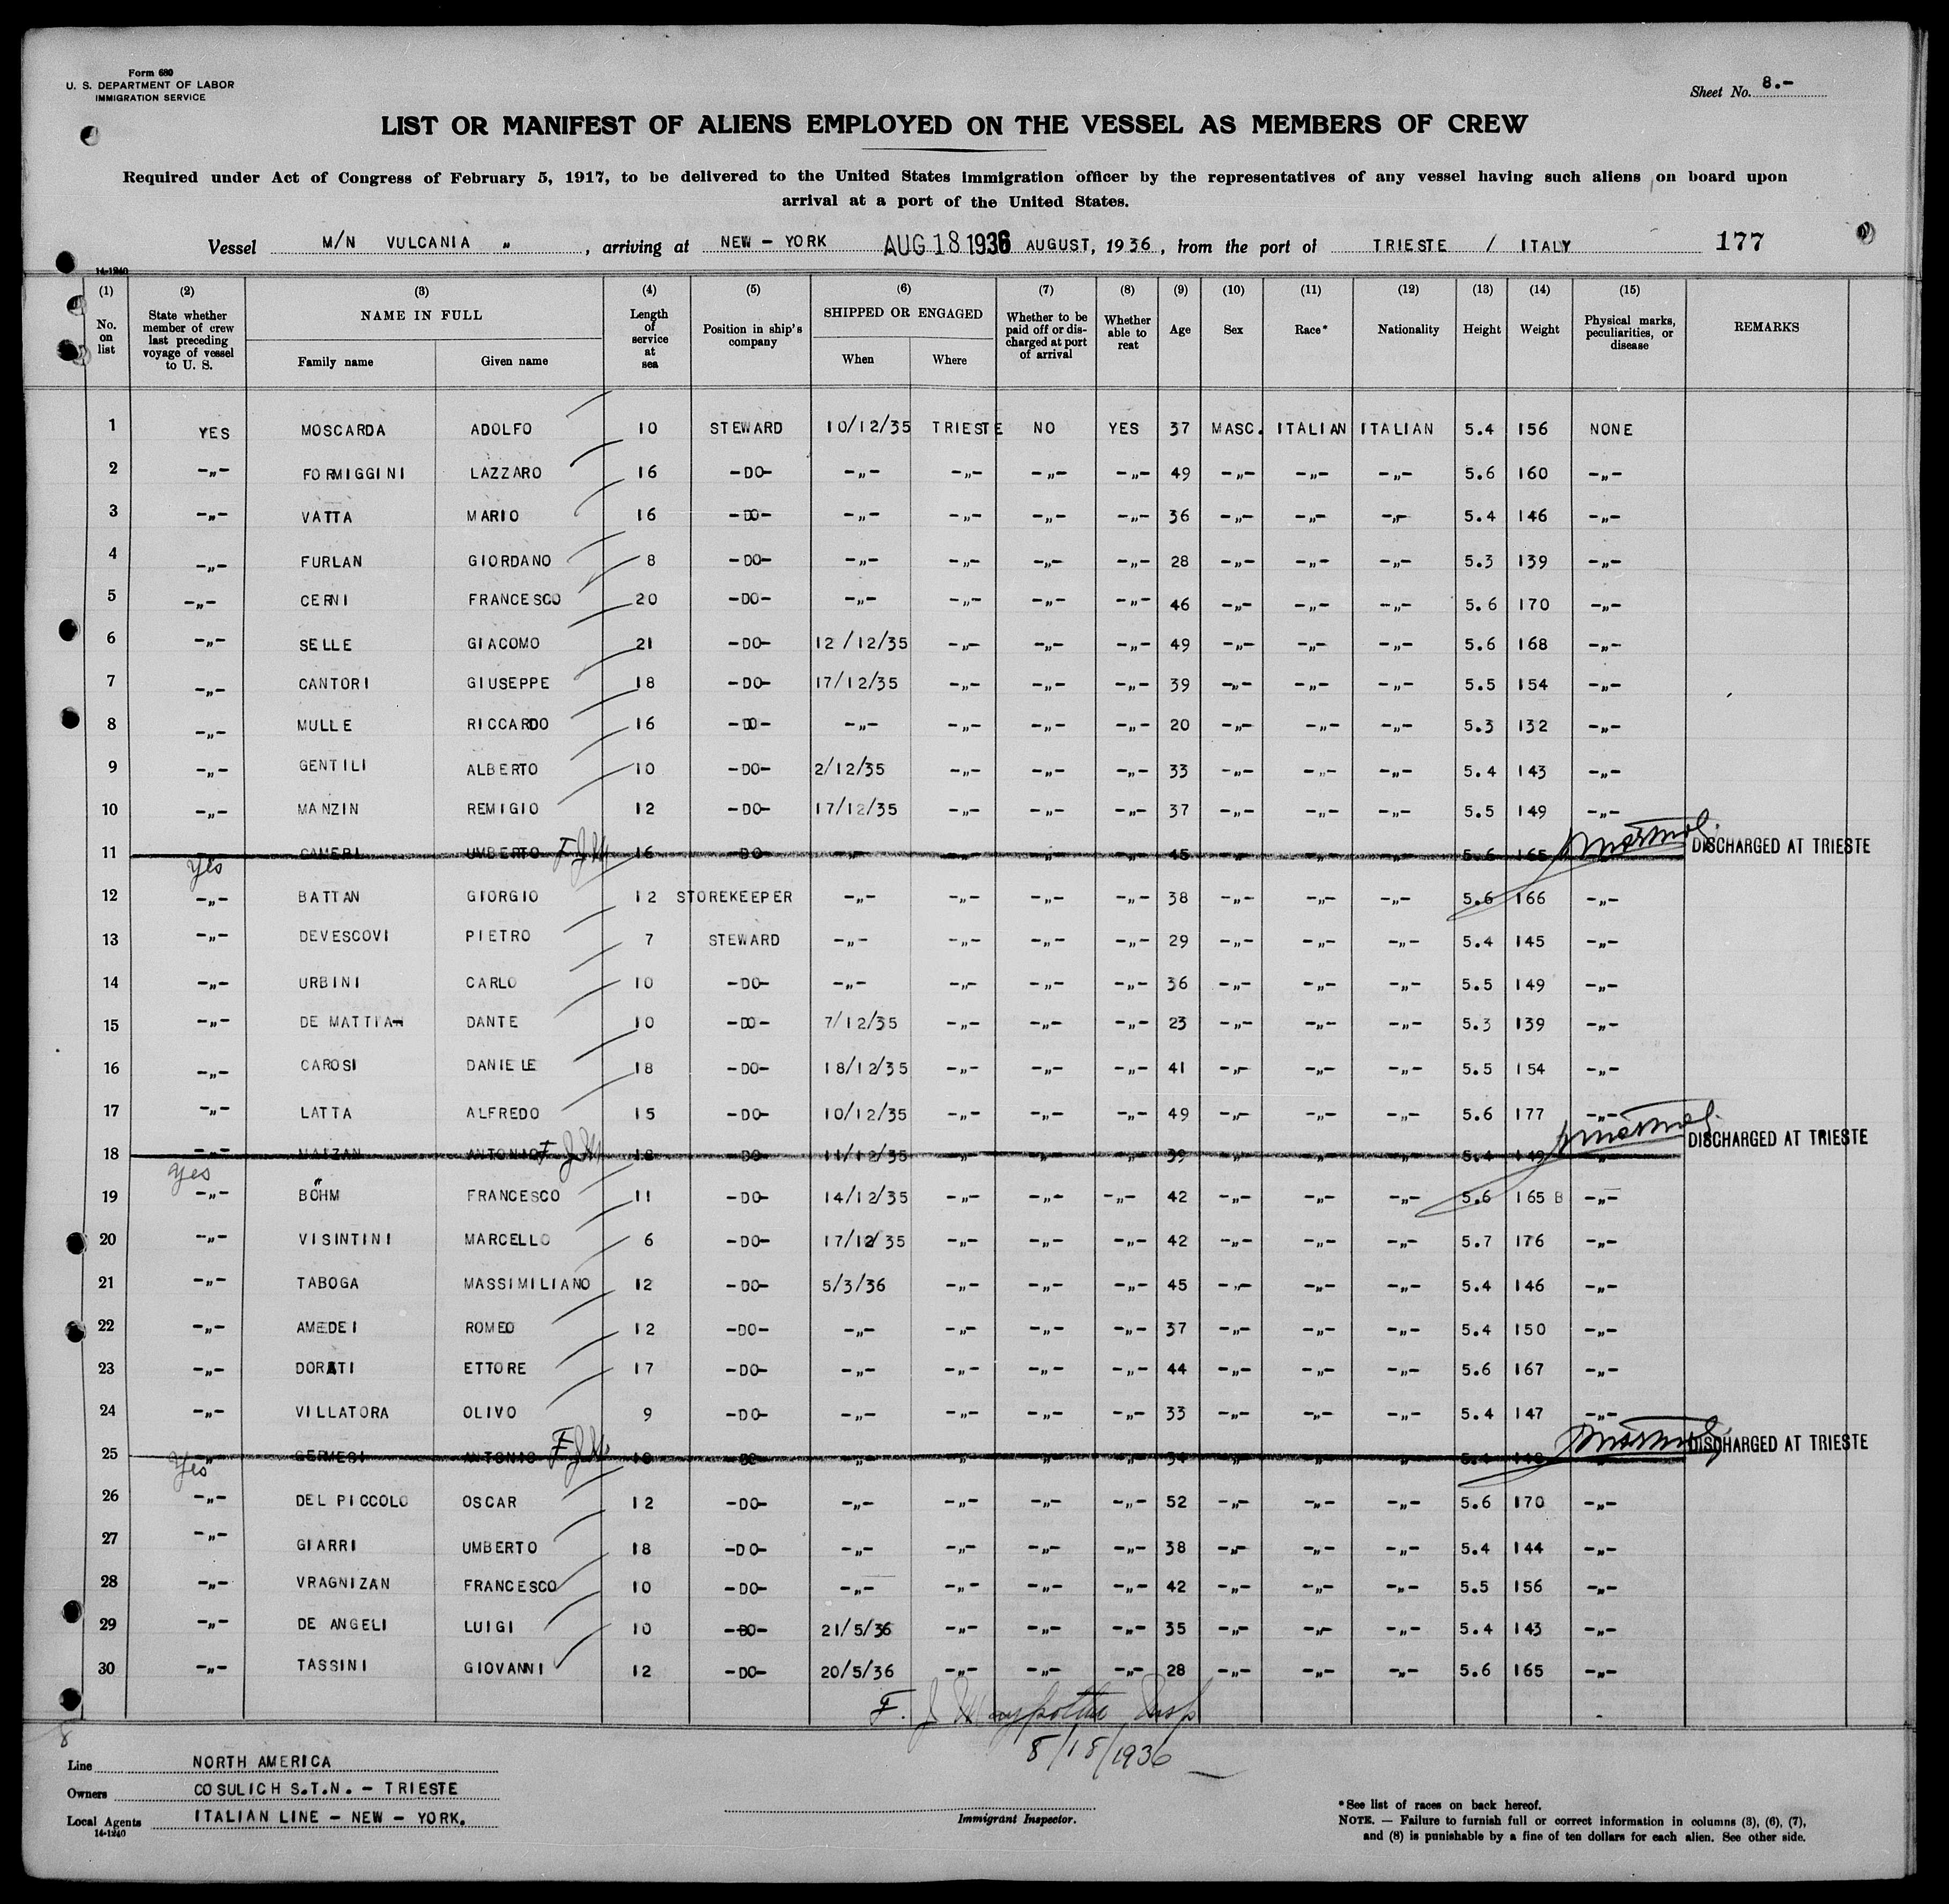 Form 680
U. S. DEPARTMENT OF LABOR
IMMIGRATION SERVICE
Sheet No. 8.-
LIST OR MANIFEST OF ALIENS EMPLOYED ON THE VESSEL AS MEMBERS OF CREW
Required under Act of Congress of February 5, 1917, to be delivered to the United States immigration officer by the representatives of any vessel having such aliens on board upon
arrival at a port of the United States.
Vessel M/N VULCANIA " , arriving at NEW - YORK AUG 18 1936 AUGUST, 1936, from the port of TRIESTE / ITALY 177
14-1240
(1) (2) (3) (4) (5) (6) (7) (8) (9) (10) (11) (12) (13) (14) (15)
No. on list State whether member of crew last preceding voyage of vessel to U. S. NAME IN FULL Family name Given name Length of service at sea Position in ship's company SHIPPED OR ENGAGED When Where Whether to be paid off or discharged at port of arrival Whether able to reat Age Sex Race* Nationality Height Weight Physical marks, peculiarities, or disease REMARKS
1 YES MOSCARDA ADOLFO 10 STEWARD 10/12/35 TRIESTE NO YES 37 MASC. ITALIAN ITALIAN 5.4 156 NONE
2 -"- FORMIGGINI LAZZARO 16 -DO- -"- -"- -"- -"- 49 -"- -"- -"- 5.6 160 -"-
3 -"- VATTA MARIO 16 -DO- -"- -"- -"- -"- 36 -"- -"- -"- 5.4 146 -"-
4 -"- FURLAN GIORDANO 8 -DO- -"- -"- -"- -"- 28 -"- -"- -"- 5.3 139 -"-
5 -"- CERNI FRANCESCO 20 -DO- -"- -"- -"- -"- 46 -"- -"- -"- 5.6 170 -"-
6 -"- SELLE GIACOMO 21 -DO- 12/12/35 -"- -"- -"- 49 -"- -"- -"- 5.6 168 -"-
7 -"- CANTORI GIUSEPPE 18 -DO- 17/12/35 -"- -"- -"- 39 -"- -"- -"- 5.5 154 -"-
8 -"- MULLE RICCARDO 16 -DO- -"- -"- -"- -"- 20 -"- -"- -"- 5.3 132 -"-
9 -"- GENTILI ALBERTO 10 -DO- 2/12/35 -"- -"- -"- 33 -"- -"- -"- 5.4 143 -"-
10 -"- MANZIN REMIGIO 12 -DO- 17/12/35 -"- -"- -"- 37 -"- -"- -"- 5.5 149 -"-
11 Yes CAMERI UMBERTO F J H 16 DO -"- -"- -"- -"- 45 -"- -"- -"- 5.6 165 DISCHARGED AT TRIESTE
12 -"- BATTAN GIORGIO 12 STOREKEEPER -"- -"- -"- -"- 38 -"- -"- -"- 5.6 166 -"-
13 -"- DEVESCOVI PIETRO 7 STEWARD -"- -"- -"- -"- 29 -"- -"- -"- 5.4 145 -"-
14 -"- URBINI CARLO 10 -DO- -"- -"- -"- -"- 36 -"- -"- -"- 5.5 149 -"-
15 -"- DE MATTIA DANTE 10 -DO- 7/12/35 -"- -"- -"- 23 -"- -"- -"- 5.3 139 -"-
16 -"- CAROSI DANIELE 18 -DO- 18/12/35 -"- -"- -"- 41 -"- -"- -"- 5.5 154 -"-
17 -"- LATTA ALFREDO 15 -DO- 10/12/35 -"- -"- -"- 49 -"- -"- -"- 5.6 177 -"-
18 -"- Yes ANTONIO F J H DO 11/12/35 -"- -"- -"- 39 -"- -"- -"- 5.4 149 -"- DISCHARGED AT TRIESTE
19 -"- BÖHM FRANCESCO 11 -DO- 14/12/35 -"- -"- -"- 42 -"- -"- -"- 5.6 165 B -"-
20 -"- VISINTINI MARCELLO 6 -DO- 17/12/35 -"- -"- -"- 42 -"- -"- -"- 5.7 176 -"-
21 -"- TABOGA MASSIMILIANO 12 -DO- 5/3/36 -"- -"- -"- 45 -"- -"- -"- 5.4 146 -"-
22 -"- AMEDEI ROMEO 12 -DO- -"- -"- -"- -"- 37 -"- -"- -"- 5.4 150 -"-
23 -"- DORATI ETTORE 17 -DO- -"- -"- -"- -"- 44 -"- -"- -"- 5.6 167 -"-
24 -"- VILLATORA OLIVO 9 -DO- -"- -"- -"- -"- 33 -"- -"- -"- 5.4 147 -"-
25 -"- Yes ANTONIO F J H DO -"- -"- -"- -"- 34 -"- -"- -"- 5.4 -"- DISCHARGED AT TRIESTE
26 -"- DEL PICCOLO OSCAR 12 -DO- -"- -"- -"- -"- 52 -"- -"- -"- 5.6 170 -"-
27 -"- GIARRI UMBERTO 18 -DO- -"- -"- -"- -"- 38 -"- -"- -"- 5.4 144 -"-
28 -"- VRAGNIZAN FRANCESCO 10 -DO- -"- -"- -"- -"- 42 -"- -"- -"- 5.5 156 -"-
29 -"- DE ANGELI LUIGI 10 -DO- 21/5/36 -"- -"- -"- 35 -"- -"- -"- 5.4 143 -"-
30 -"- TASSINI GIOVANNI 12 -DO- 20/5/36 -"- -"- -"- 28 -"- -"- -"- 5.6 165 -"-
F. J. Insp
8/18/1936
8
Line NORTH AMERICA
Owners COSULICH S.T.N. - TRIESTE
Local Agents ITALIAN LINE - NEW - YORK.
14-1240
Immigrant Inspector.
*See list of races on back hereof.
NOTE. — Failure to furnish full or correct information in columns (3), (6), (7),
and (8) is punishable by a fine of ten dollars for each alien. See other side.